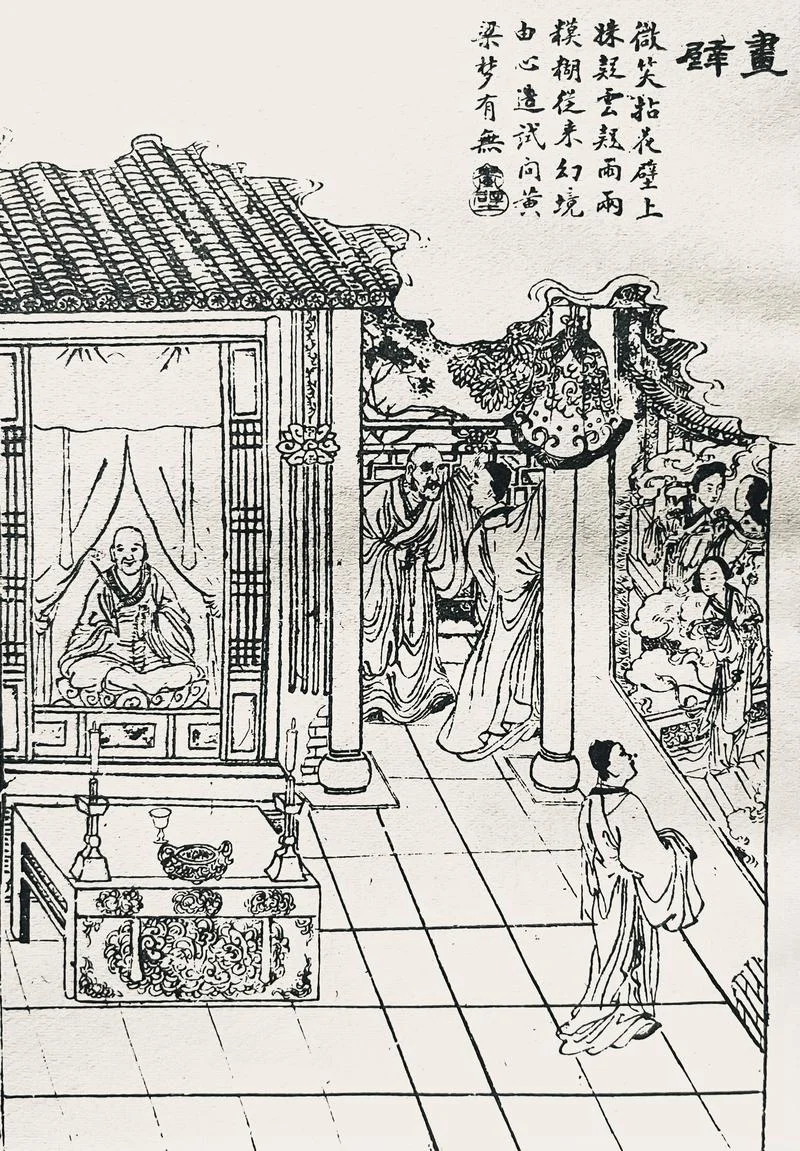 畫壁
微笑拈花壁上
姝疑雲疑雨兩
糢糊從来幻境
由心造試问黄
梁梦有無